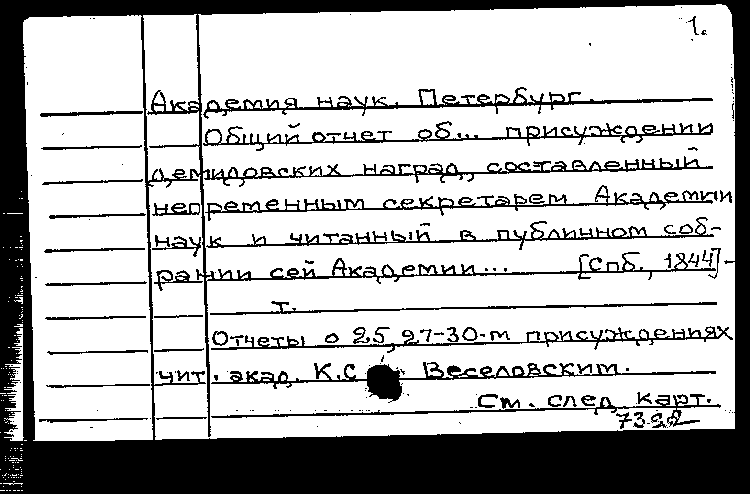 1.
Академия наук. Петербург.
Общий отчет об... присуждении
демидовских наград, составленный
непременным секретарем Академии
наук и читанный в публичном соб-
рании сей Академии... [Спб., 1844]-
т.
Отчеты о 25, 27-30-м присуждениях
чит. акад. К.С Веселовским.
См. след карт.